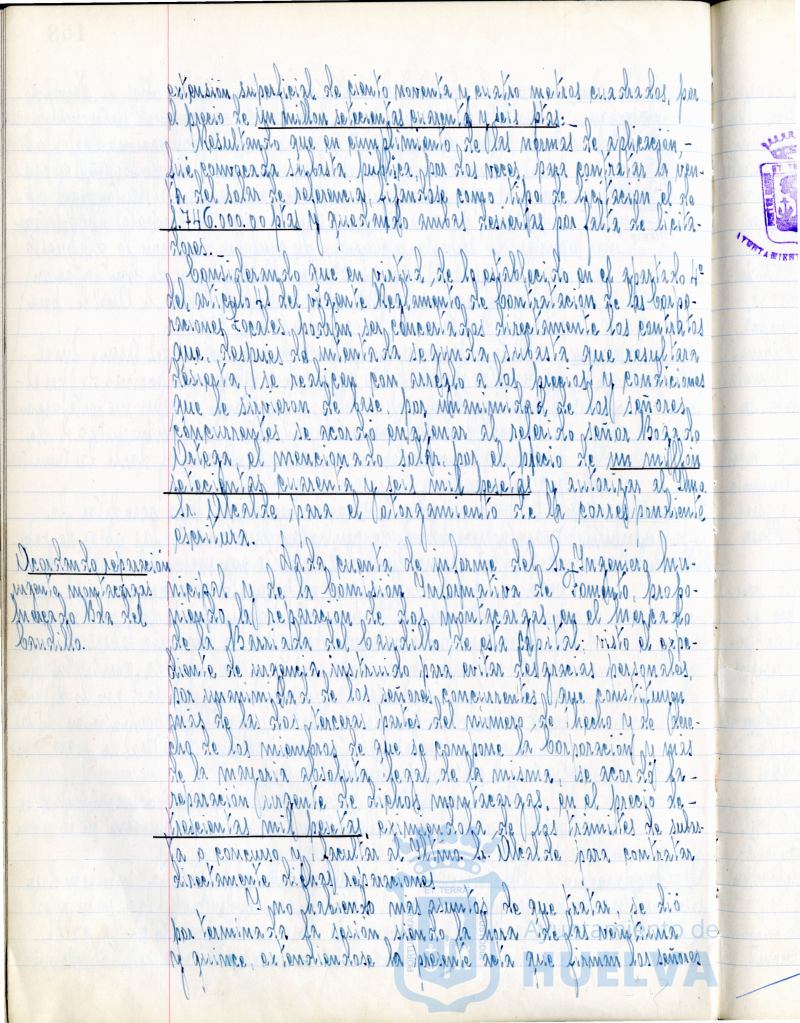 extensión superficial de ciento noventa y cuatro metros cuadrados, por
el precio de un millon setecientas cuarenta y seis ptas:-
Resultando que en cumplimiento de las normas de aplicación,-
fué convocada subasta pública, por dos veces, para contratar la ven-
ta del solar de referencia, fijandose como tipo de licitación el de
1.746.000.00 ptas y quedando ambas desiertas por falta de licita-
dores.-
Considerando que en virtud de lo establecido en el apartado 4º
del artículo 41 del vigente Reglamento de Contratación de las Corpo-
raciones Locales, podrán ser concertados directamente los contratos
que, después de intentada segunda subasta que resultara
desierta, se realicen con arreglo a los precios y condiciones
que le sirvieron de base, por unanimidad de los señores
concurrentes se acordó enajenar al referido señor Bozado
Ortega, el mencionado solar, por el precio de un millón
setecientas cuarenta y seis mil pesetas y autorizar al Ilmo.
Sr. Alcalde para el otorgamiento de la correspondiente
escritura.
Acordando reparación
urgente montacargas
Mercado Bda del
Caudillo.
Dada cuenta de informe del Sr. Ingeniero Mu-
nicipal y de la Comisión Informativa de Fomento, propo-
niendo la reparación de dos montacargas, en el Mercado
de la Barriada del Caudillo, de esta Capital; visto el expe-
diente de urgencia instruido para evitar desgracias personales,
por unanimidad de los señores concurrentes, que constituyen
más de las dos terceras partes del número de hecho y de dere-
cho de los miembros de que se compone la Corporación y más
de la mayoría absoluta legal de la misma, se acordó la-
reparación urgente de dichos montacargas, en el precio de-
trescientas mil pesetas, eximiendola de los trámites de subas-
ta o concurso y facultar al Iltmo. Sr. Alcalde para contratar
directamente dichas reparaciones.
Y no habiendo más asuntos de que tratar, se dió
por terminada la sesión siendo la hora de las veintiuna
y quince, extendiendose la presente acta que firman los señores
Ayuntamiento de
HUELVA